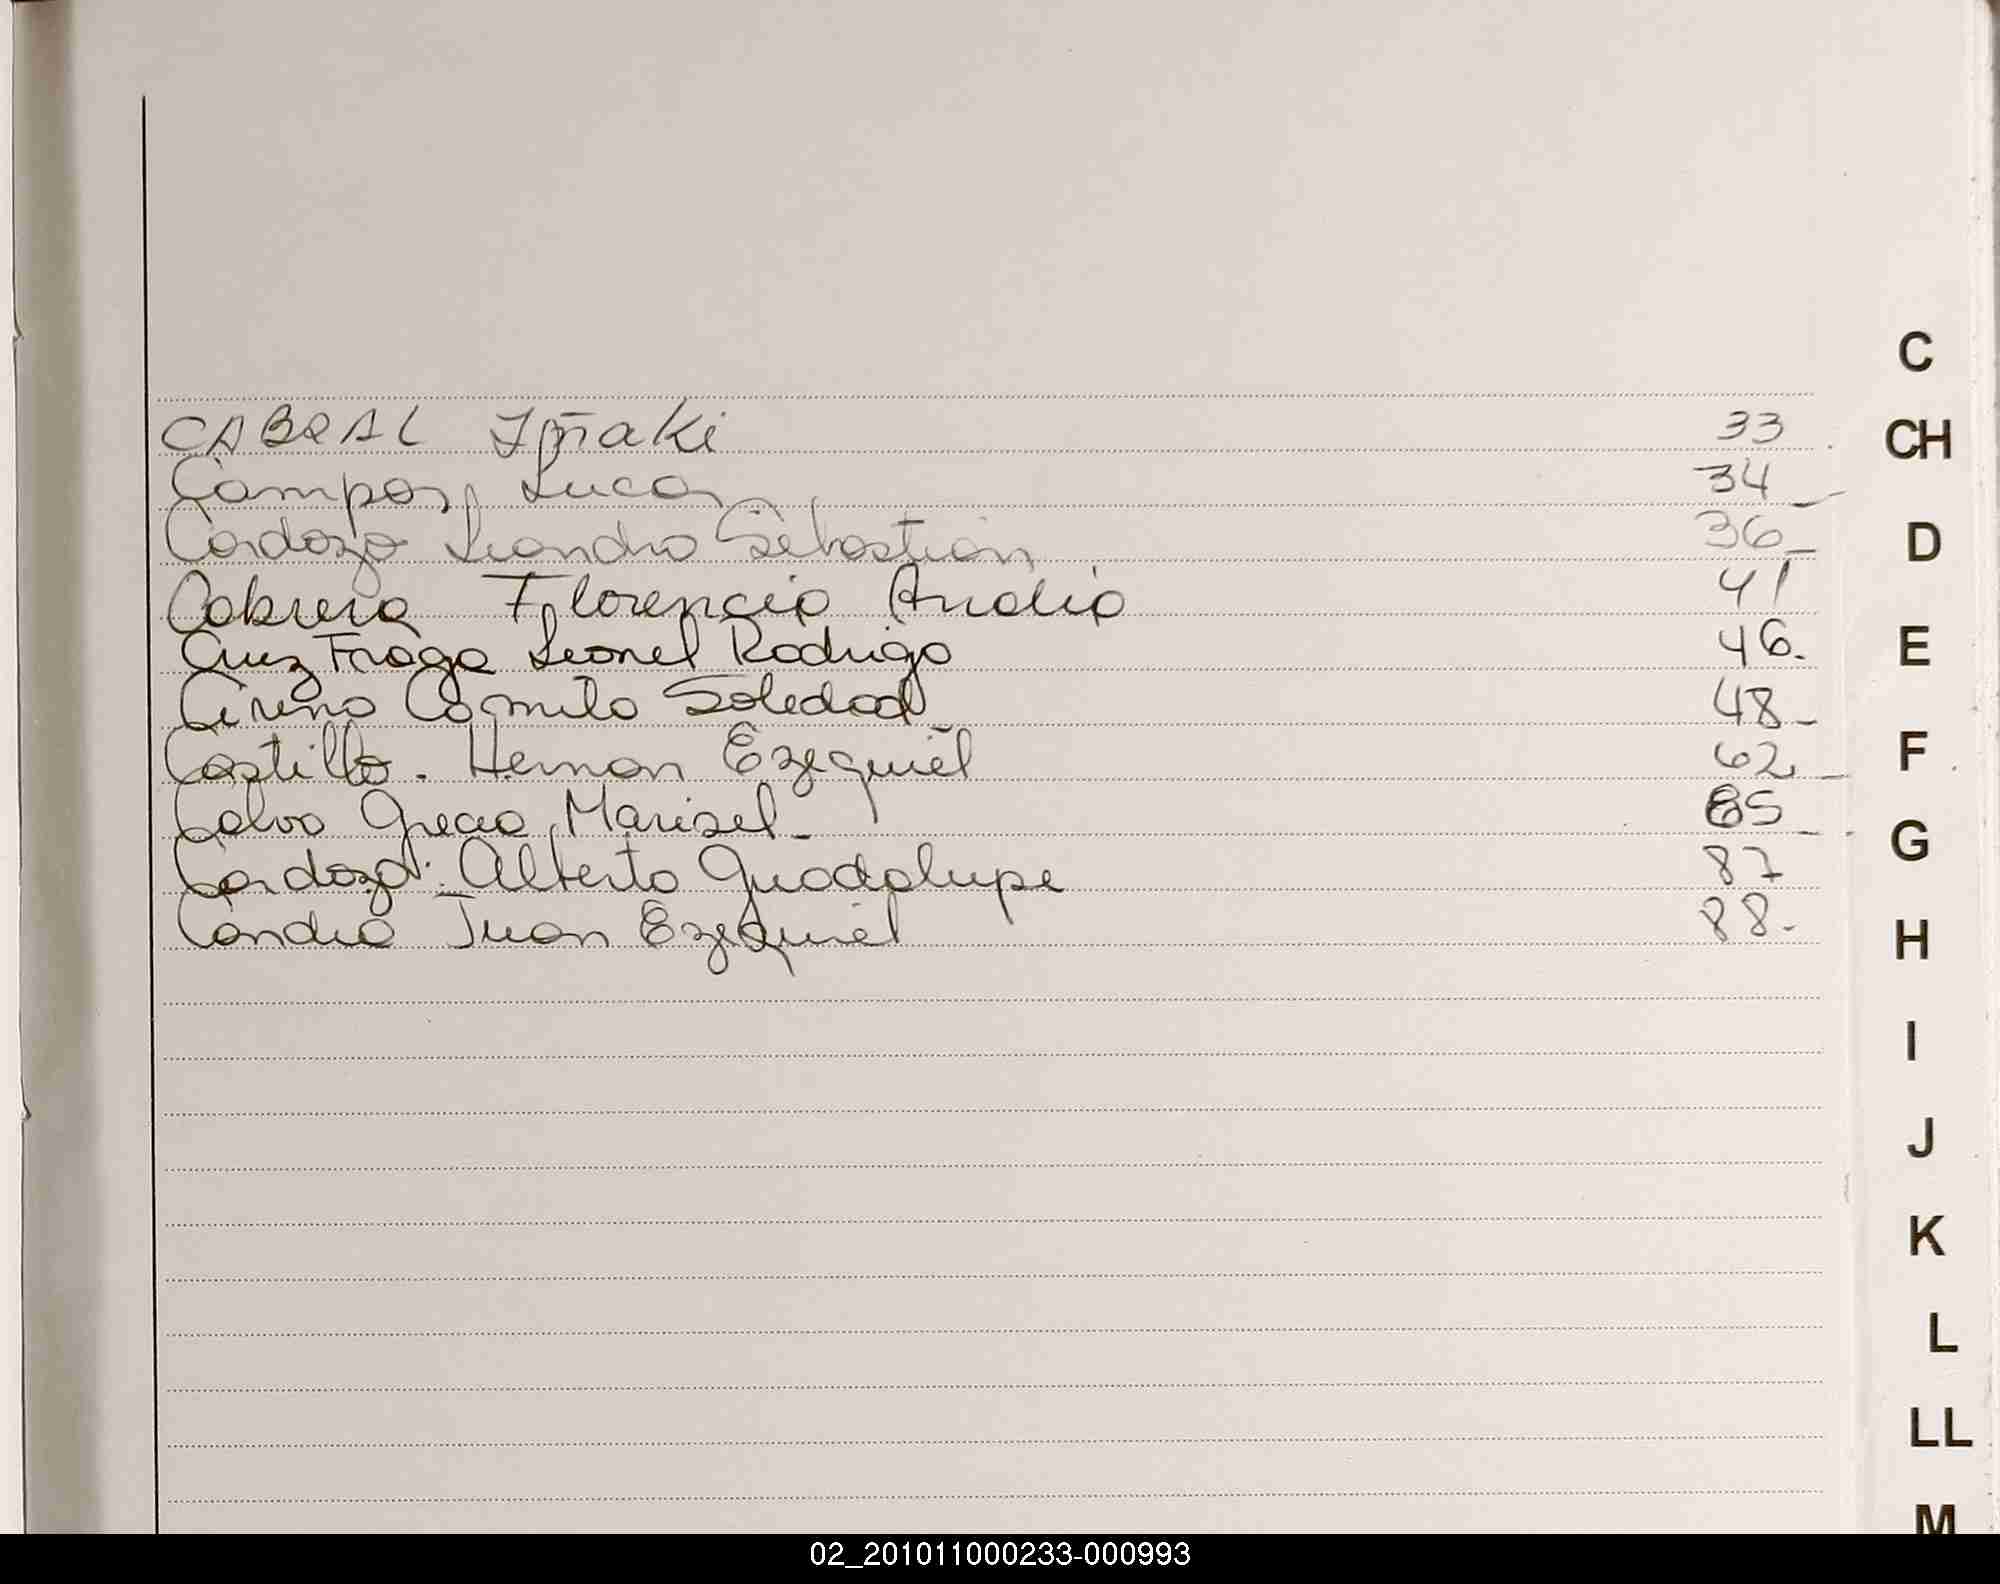 CABRAL Iñaki 33
Campos, Lucas 34
Cardozo Leandro Sebastian 36
Cabrera Florencio 41
Cruz Fraga Leonel Rodrigo 46.
Camila Soledad 48
Castillo. Hernan Ezequiel 62
Calvo Grecia Marisel 85
Cardozo. Alberto Guadalupe 87
Candia Juan Ezequiel 88.
C
CH
D
E
F
G
H
I
J
K
L
LL
M
02_201011000233-000993